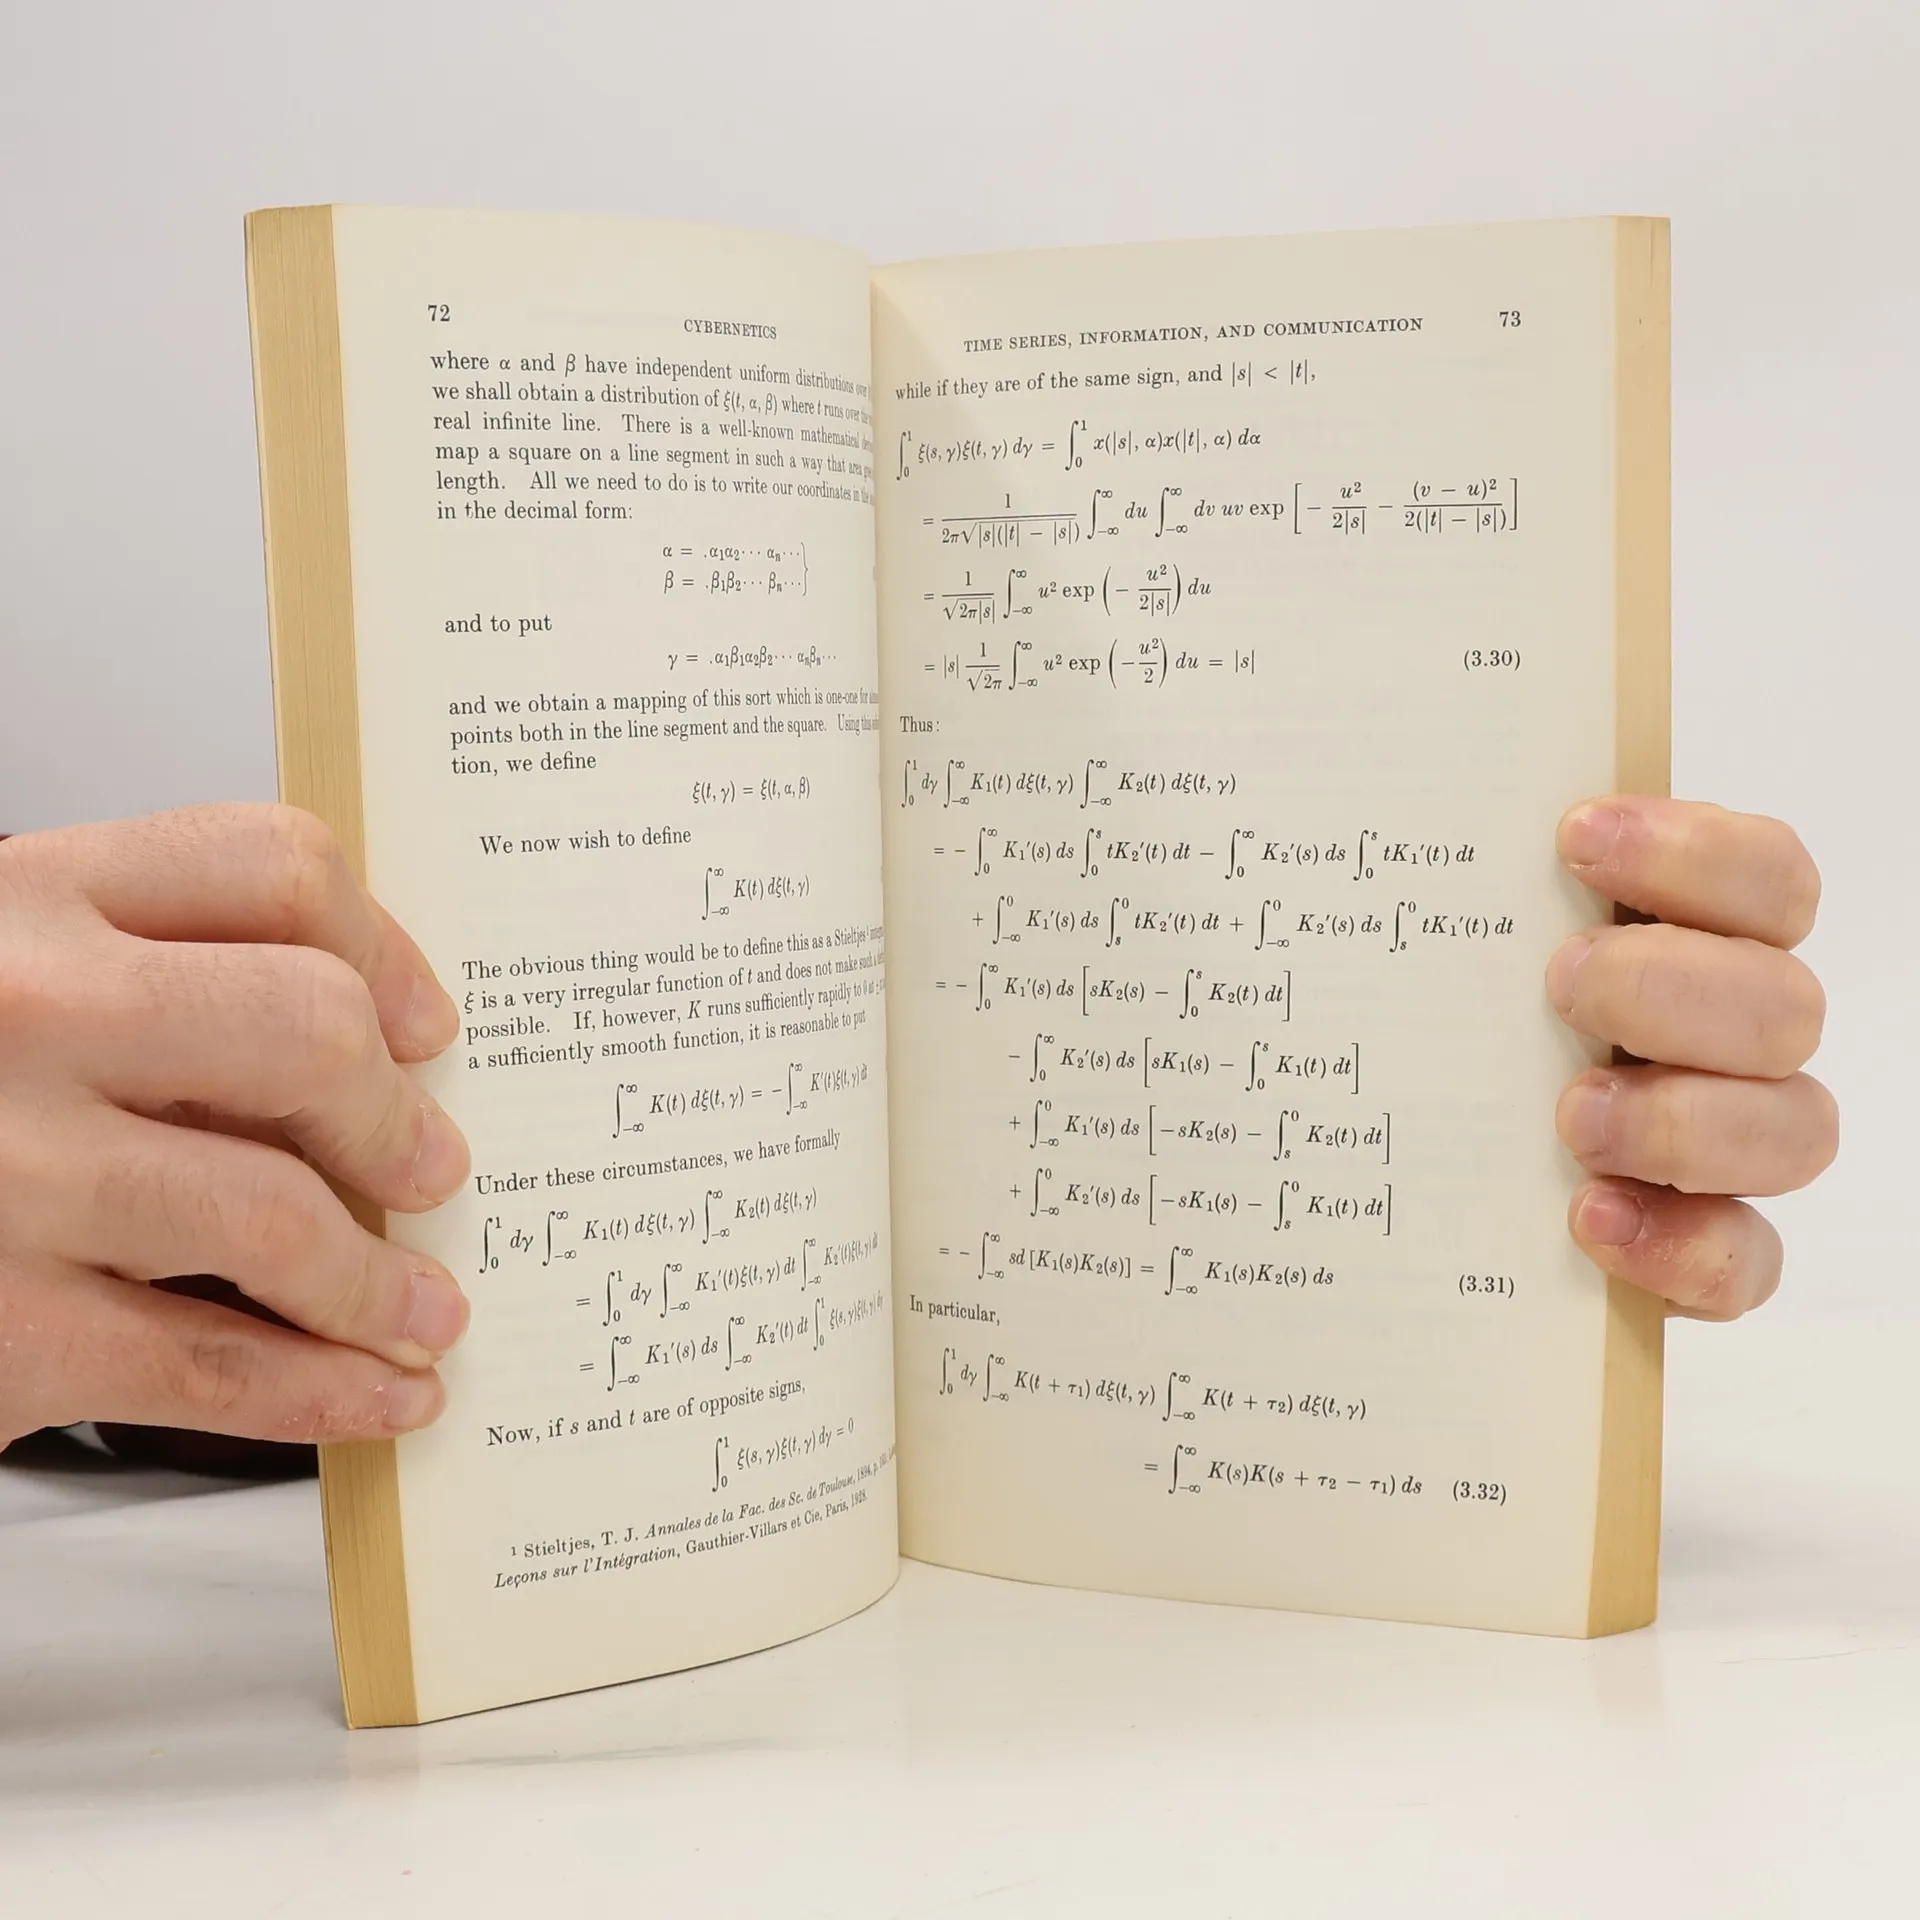 72
CYBERNETICS
where α and β have independent uniform distributions over
we shall obtain a distribution of ξ(t, α, β) where t runs over the
real infinite line. There is a well-known mathematical
map a square on a line segment in such a way that area
length. All we need to do is to write our coordinates in the
in the decimal form:
α = .α₁α₂··· αₙ···}
β = .β₁β₂··· βₙ···}
and to put
γ = .α₁β₁α₂β₂··· αₙβₙ···
and we obtain a mapping of this sort which is one-one for
points both in the line segment and the square. Using this
tion, we define
ξ(t, γ) = ξ(t, α, β)
We now wish to define
∫_{-∞}^{∞} K(t) dξ(t, γ)
The obvious thing would be to define this as a Stieltjes¹
ξ is a very irregular function of t and does not make such a
possible. If, however, K runs sufficiently rapidly to 0 at
a sufficiently smooth function, it is reasonable to put
∫_{-∞}^{∞} K(t) dξ(t, γ) = −∫_{-∞}^{∞} K′(t)ξ(t, γ) dt
Under these circumstances, we have formally
∫_0^1 dγ ∫_{-∞}^{∞} K₁(t) dξ(t, γ) ∫_{-∞}^{∞} K₂(t) dξ(t, γ)
= ∫_0^1 dγ ∫_{-∞}^{∞} K₁′(t)ξ(t, γ) dt ∫_{-∞}^{∞} K₂′(t)ξ(t, γ) dt
= ∫_{-∞}^{∞} K₁′(s) ds ∫_{-∞}^{∞} K₂′(t) dt ∫_0^1 ξ(s, γ)ξ(t, γ) dγ
Now, if s and t are of opposite signs,
∫_0^1 ξ(s, γ)ξ(t, γ) dγ = 0
¹ Stieltjes, T. J. Annales de la Fac. des Sc. de Toulouse, 1894, p.
Leçons sur l'Intégration, Gauthier-Villars et Cie, Paris, 1928.
TIME SERIES, INFORMATION, AND COMMUNICATION 73
while if they are of the same sign, and |s| < |t|,
∫_0^1 ξ(s, γ)ξ(t, γ) dγ = ∫_0^1 x(|s|, α)x(|t|, α) dα
= 1/(2π√(|s|(|t| − |s|))) ∫_{-∞}^{∞} du ∫_{-∞}^{∞} dv uv exp [− u²/(2|s|) − (v − u)²/(2(|t| − |s|))]
= 1/√(2π|s|) ∫_{-∞}^{∞} u² exp (− u²/(2|s|)) du
= |s| 1/√(2π) ∫_{-∞}^{∞} u² exp (−u²/2) du = |s| (3.30)
Thus:
∫_0^1 dγ ∫_{-∞}^{∞} K₁(t) dξ(t, γ) ∫_{-∞}^{∞} K₂(t) dξ(t, γ)
= − ∫_0^{∞} K₁′(s) ds ∫_0^s tK₂′(t) dt − ∫_0^{∞} K₂′(s) ds ∫_0^s tK₁′(t) dt
+ ∫_{-∞}^0 K₁′(s) ds ∫_s^0 tK₂′(t) dt + ∫_{-∞}^0 K₂′(s) ds ∫_s^0 tK₁′(t) dt
= − ∫_0^{∞} K₁′(s) ds [sK₂(s) − ∫_0^s K₂(t) dt]
− ∫_0^{∞} K₂′(s) ds [sK₁(s) − ∫_0^s K₁(t) dt]
+ ∫_{-∞}^0 K₁′(s) ds [−sK₂(s) − ∫_s^0 K₂(t) dt]
+ ∫_{-∞}^0 K₂′(s) ds [−sK₁(s) − ∫_s^0 K₁(t) dt]
= − ∫_{-∞}^{∞} sd [K₁(s)K₂(s)] = ∫_{-∞}^{∞} K₁(s)K₂(s) ds (3.31)
In particular,
∫_0^1 dγ ∫_{-∞}^{∞} K(t + τ₁) dξ(t, γ) ∫_{-∞}^{∞} K(t + τ₂) dξ(t, γ)
= ∫_{-∞}^{∞} K(s)K(s + τ₂ − τ₁) ds (3.32)